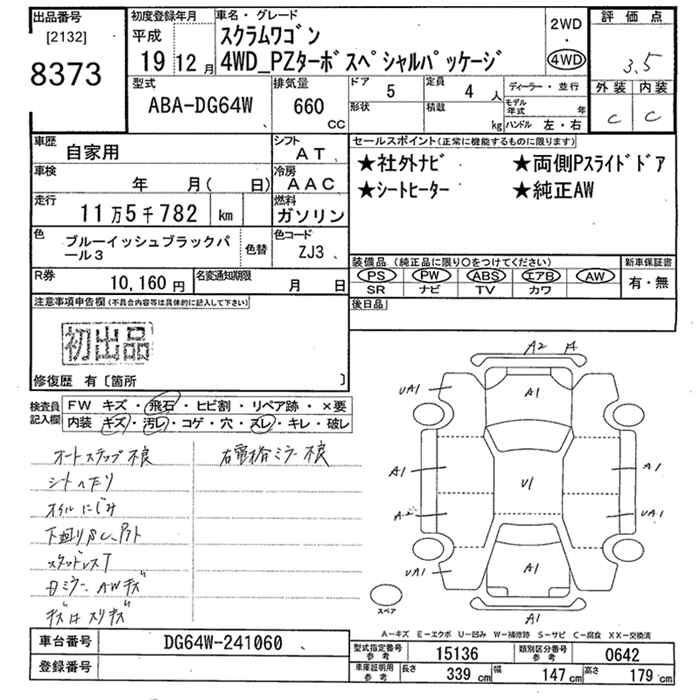 出品番号 初度登録年月 車名・グレード 評価点
[2132] 平成 スクラムワゴン 2WD 3.5
8373 19 12月 4WD_PZターボスペシャルパッケージ 4WD
型式 排気量 ドア 5 定員 4 人 ディーラー・並行 外装 内装
ABA-DG64W 660 CC 形状 積載 kg モデル年式 年 C C
ハンドル 左・右
車歴 自家用 シフト AT セールスポイント(正常に機能するものに限ります)
車検 年 月( 日) 冷房 AAC ★社外ナビ ★両側Pスライドドア
走行 11万5千782 km 燃料 ガソリン ★シートヒーター ★純正AW
色 ブルーイッシュブラックパール3 色替 色コード ZJ3
装備品(純正品に限り○をつけてください) 新車保証書
PS PW ABS エアB AW 有・無
SR ナビ TV カワ
R券 10,160円 名変通知期限 月 日
後日品
注意事項申告欄(不具合内容等は具体的に記入して下さい)
初出品
修復歴 有〔箇所 〕
検査員記入欄 FW キズ・飛石・ヒビ割・リペア跡・×要
内装 キズ・汚レ・コゲ・穴・スレ・キレ・破レ
オートステップ不良 右電格ミラー不良
シートヘタリ
オイルにじみ
下廻りSC、P外
スタッドレスT
ミラー AWキズ
キズはスリキズ
A2 A
UA1 A1
A1 U1 A1
A2 UA1
UA1 A1
A1
スペア
A-キズ E-エクボ U-凹み W-補修跡 S-サビ C-腐食 XX-交換済
車台番号 DG64W-241060
登録番号
型式指定番号 参考 15136 類別区分番号 参考 0642
車庫証明用 参考 長さ 339 cm 幅 147 cm 高さ 179 cm